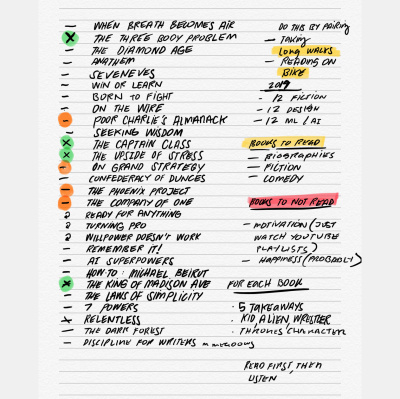 — WHEN BREATH BECOMES AIR
x THE THREE BODY PROBLEM
— THE DIAMOND AGE
— ANATHEM
— SEVENEVES
— WIN OR LEARN
— BORN TO FIGHT
— ON THE WIRE
— POOR CHARLIE'S ALMANACK
— SEEKING WISDOM
x THE CAPTAIN CLASS
x THE UPSIDE OF STRESS
+ ON GRAND STRATEGY
— CONFEDERACY OF DUNCES
— THE PHOENIX PROJECT
— THE COMPANY OF ONE
? READY FOR ANYTHING
? TURNING PRO
? WILLPOWER DOESN'T WORK
— REMEMBER IT!
— AI SUPERPOWERS
— HOW TO: MICHAEL BEIRUT
x THE KING OF MADISON AVE
— THE LAWS OF SIMPLICITY
— 7 POWERS
x RELENTLESS
— THE DARK FOREST
— DISCIPLINE FOR WRITERS
DO THIS BY PAIRING
— TAKING
LONG WALKS
— READING ON
BIKE
2019
- 12 FICTION
- 12 DESIGN
- 12 ML/AI
BOOKS TO READ
— BIOGRAPHIES
— FICTION
— COMEDY
BOOKS TO NOT READ
— MOTIVATION (JUST
WATCH YOUTUBE
PLAYLISTS)
— HAPPINESS (PROBABLY)
FOR EACH BOOK
· 5 TAKEAWAYS
· KID, ALIEN, WRESTLER
· THRONES CHARACTER
READ FIRST, THEN
LISTEN